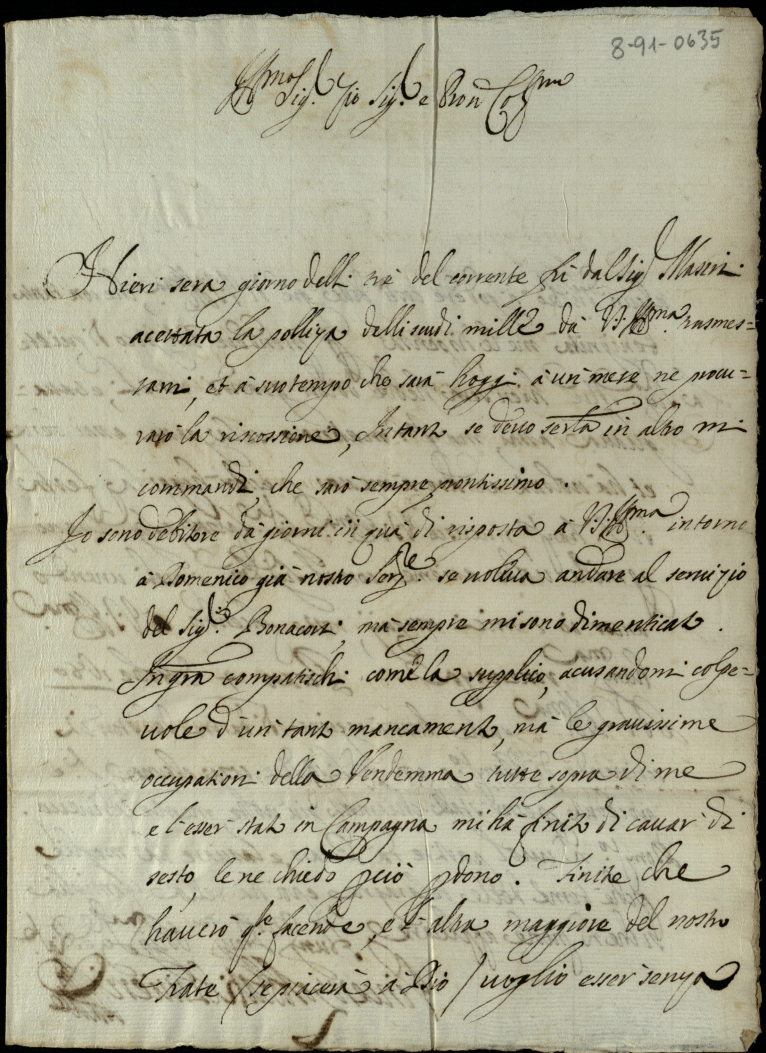 8-91-0635
Ill.mo Sig.r Zio Sig.r e Pron Col.mo
Hieri sera giorno delli trè del corrente fù dal Sig.r Maseri
acettata la polliza delli scudi mille da V.S. Ill.ma trasmes=
sami, et à suo tempo che sarà hoggi à un mese ne procu=
rarò la riscossione, Intanto se devo servirla in altro mi
commandi, che sarò sempre prontissimo.
Io sono debitore da giorni in quà di risposta à V.S. Ill.ma intorno
à Domenico già nostro Ser.re se voleva andare al servizio
del Sig.r Bonacorsi, mà sempre mi sono dimenticato.
In gra compatischi come la supplico, acusandomi colpe=
vole d'un tanto mancamento, mà le gravissime
occupationi della Vendemma tutte sopra di me
e l'esser stato in Campagna mi hà finito di cavar di
sesto, le ne chiedo pciò pdono. Finite che
haverò q.te facende, e l'altra maggiore del nostro
Frate / se piacerà à Dio / voglio esser senza